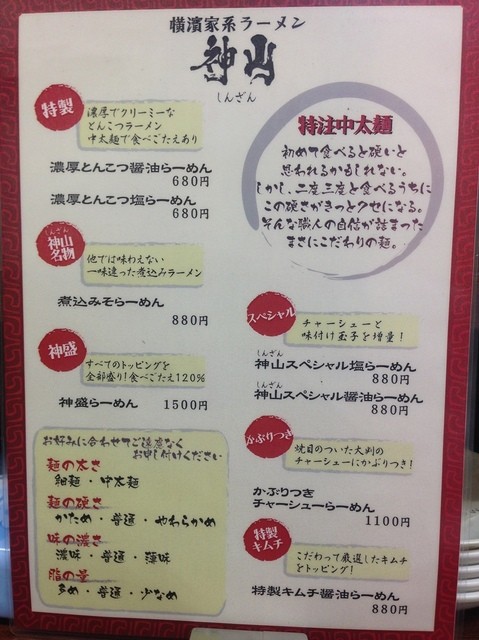 横濱家系ラーメン
神山
しんざん
特製
濃厚でクリーミーな
とんこつラーメン
中太麺で食べごたえあり
濃厚とんこつ醤油らーめん
680円
濃厚とんこつ塩らーめん
680円
しんざん
神山
名物
他では味わえない
一味違った煮込みラーメン
煮込みそらーめん
880円
神盛
すべてのトッピングを
全部盛り!食べごたえ120%
神盛らーめん 1500円
お好みに合わせてご遠慮なく
お申し付けください
麺の太さ
細麺・中太麺
麺の硬さ
かため・普通・やわらかめ
味の濃さ
濃味・普通・薄味
脂の量
多め・普通・少なめ
特注中太麺
初めて食べると硬いと
思われるかもしれない。
しかし、二度三度と食べるうちに
この硬さがきっとクセになる。
そんな職人の自信が詰まった
まさにこだわりの麺。
スペシャル
チャーシューと
味付け玉子を増量!
しんざん
神山スペシャル塩らーめん
880円
しんざん
神山スペシャル醤油らーめん
880円
かぶりつき
焼目のついた大判の
チャーシューにかぶりつき!
かぶりつき
チャーシューらーめん
1100円
特製
キムチ
こだわって厳選したキムチ
をトッピング!
特製キムチ醤油らーめん
880円